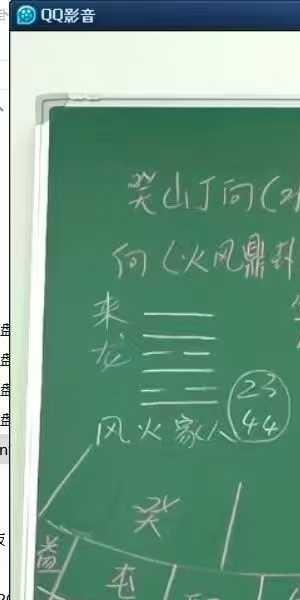 QQ影音
癸山丁向(
向(火风鼎卦
来
龙
23
44
风火家人
癸
益
屯
盘
盘
盘
盘